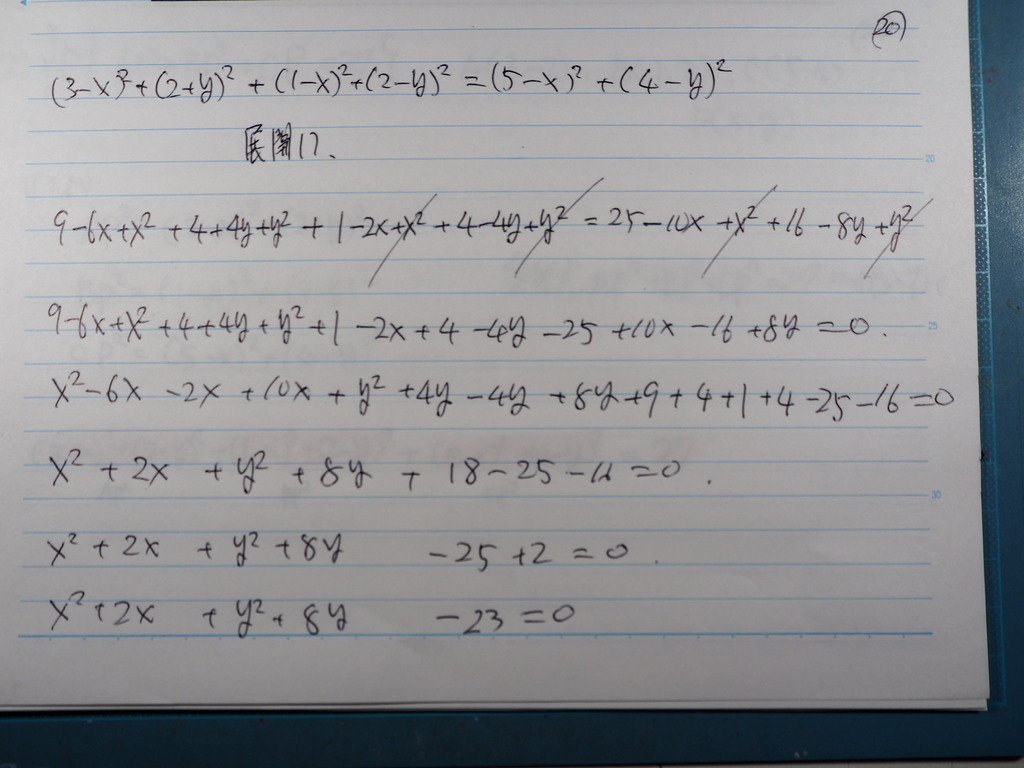 (20)
(3-x)²+(2+y)² + (1-x)²+(2-y)² = (5-x)² + (4-y)²
展開17、
9-6x+x² +4+4y+y² + 1-2x+x² +4-4y+y² = 25-10x +x² +16 -8y +y²
9-6x+x² +4+4y +y² +1 -2x +4 -4y -25 +10x -16 +8y =0.
x²-6x -2x +10x + y² +4y -4y +8y +9 +4+1+4-25-16=0
x² + 2x + y² + 8y + 18-25-16=0.
x² + 2x + y² +8y -25 +2 =0.
x²+2x + y² + 8y -23 =0
20
25
30